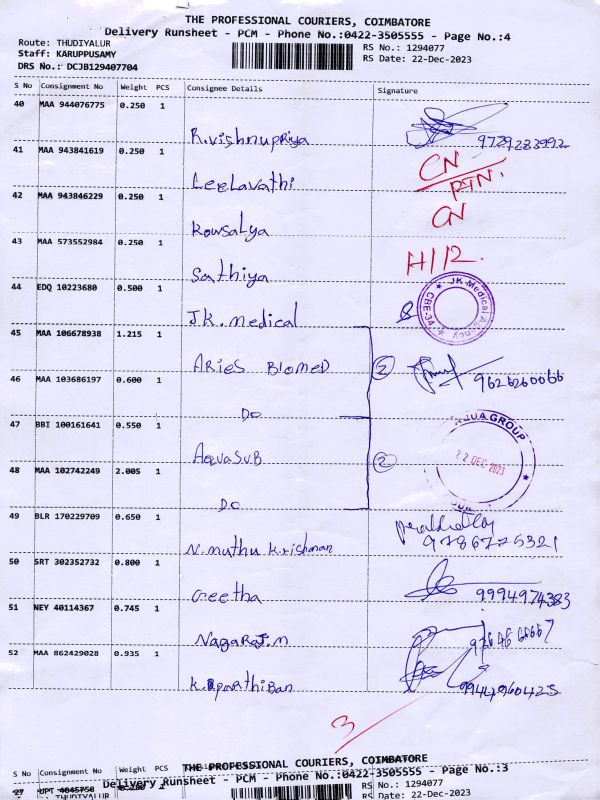 THE PROFESSIONAL COURIERS, COIMBATORE
Delivery Runsheet - PCM - Phone No.:0422-3505555 - Page No.:4
Route: THUDIYALUR
Staff: KARUPPUSAMY
DRS No.: DCJB129407704
RS No.: 1294077
RS Date: 22-Dec-2023
S No Consignment No Weight PCS Consignee Details Signature
40 MAA 944076775 0.250 1
R.vishnupriya 9729283992
41 MAA 943841619 0.250 1 CN
Leelavathi RTN.
42 MAA 943846229 0.250 1 CN
Kowsalya
43 MAA 573552984 0.250 1 H/12.
Sathiya
44 EDQ 10223680 0.500 1
J.K. Medical JK-Medical
45 MAA 106678938 1.215 1
ARIES BIOMED 2 9626260066
46 MAA 103686197 0.600 1
DO
47 BBI 100161641 0.550 1 GROUP
AQUASUB 2 22 DEC 2023
48 MAA 102742249 2.005 1
DO
49 BLR 170229709 0.650 1
N.muthu Krishnan 9786775321
50 SRT 302352732 0.800 1
Geetha 9994974383
51 NEY 40114367 0.745 1
Nagaraj.N
52 MAA 862429028 0.935 1
K.Parthiban 9944960425
3
THE PROFESSIONAL COURIERS, COIMBATORE
S No Consignment No Weight PCS
Delivery Runsheet - PCM - Phone No.:0422-3505555 - Page No.:3
27 UPT 4845758 0.250
THUDIYALUR
RS No.: 1294077
RS Date: 22-Dec-2023